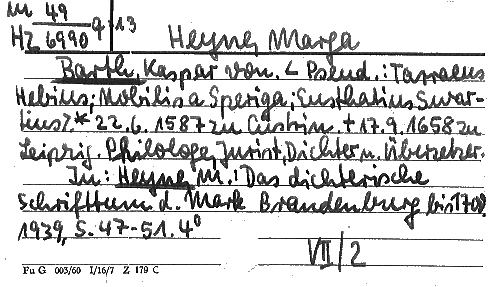 M 49 q:13
HZ 6990
Heyne, Marga
Barth, Kaspar von. < Pseud.: Tarraeus
Hebius; Nobilis a Speriga; Eusthatius Swar-
tius>. * 22.6.1587 zu Cüstrin. † 17.9.1658 zu
Leipzig. Philologe, Jurist, Dichter u. Übersetzer.
In: Heyne, M.: Das dichterische
Schrifttum d. Mark Brandenburg bis 1700.
1939, S. 47-51. 4°
VII/2
Fu G 003/60 I/16/7 Z 179 C